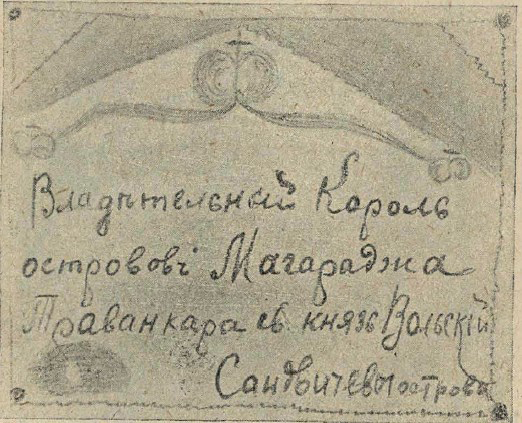 Владѣтельный Король
острововъ Магараджа
Траванкара съ князь Вольскій
Сандвичевы острова